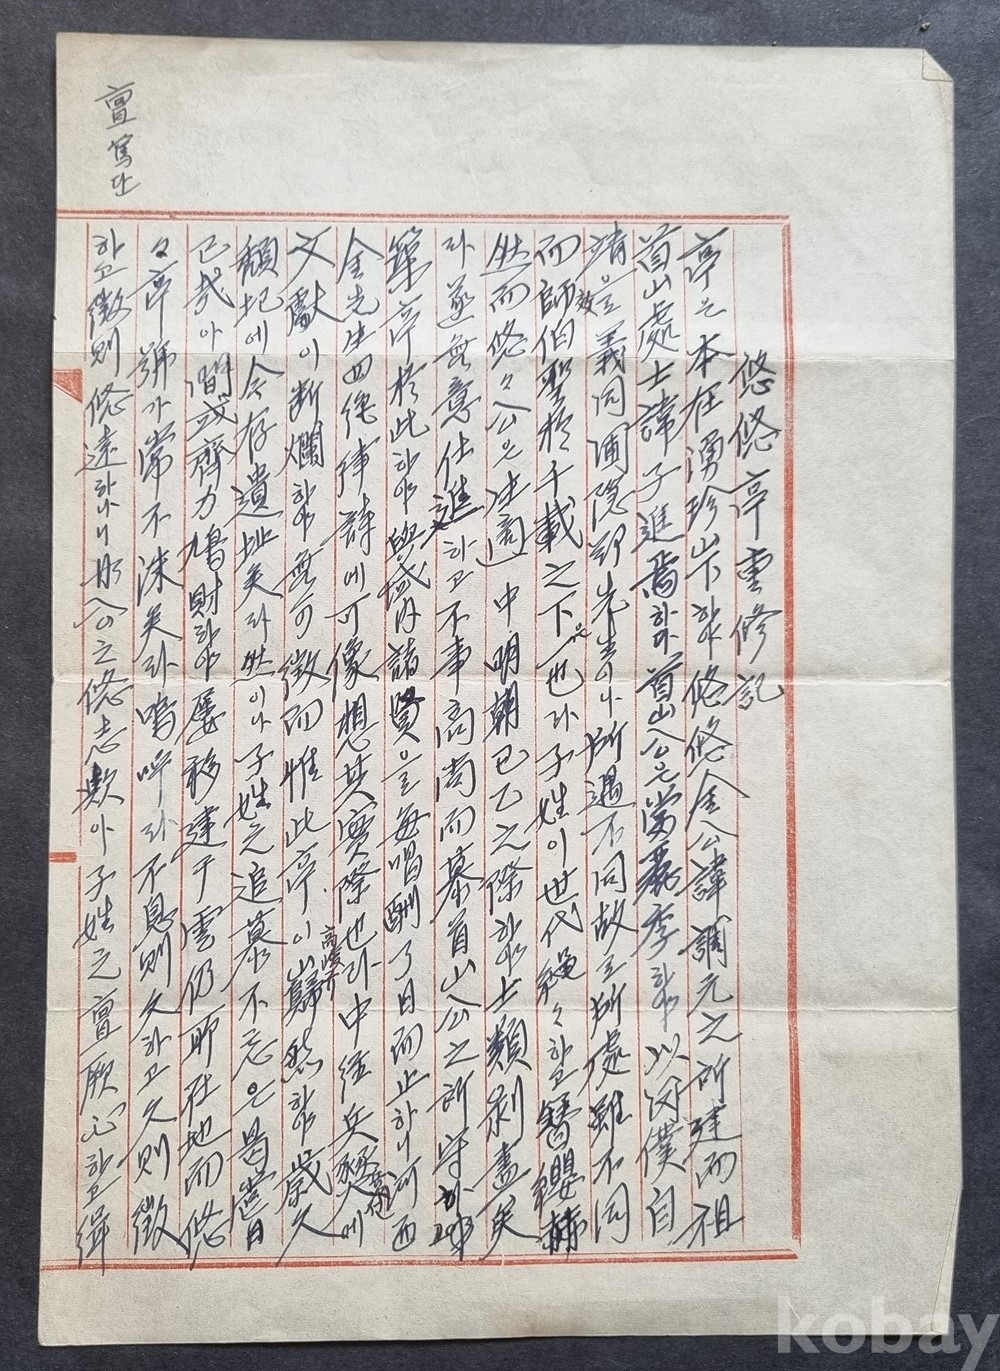 悠悠亭重修記
亭는本在湧珍山下하야悠悠金公諱調元之所建而祖
首山處士諱子進焉하다首山公은當麗季하야以罔僕自
靖은義同圃隱鄭先生이나所遇不同故로所處雖不同
而師效伯聖於千載之下는也라子姓이世代繩々하고簪纓赫
然而悠々公은法 中明朝已乙之際하야士類剝盡矣
라遂無意仕進하고不事高尚而慕首山公之所守하야
築亭於此하야與城內諸賢으로每唱酬了日而止하니河西
金先生四絶律詩에可像想其實際也라中經兵燹에
文獻이断爛하야無可徵而惟此亭이山高 歸然하야歲久
頹圮에今存遺址矣라然이나子姓之追慕不忘은曷嘗
已哉아間或齊力鳩財하야屢移建于雲仍所在地而悠
々亭號가常不沫矣라嗚呼라不息則久하고久則徵
하고徵則悠遠하나니此公之悠志歟아子姓之亶厥心하고緝
亶篤
kobay